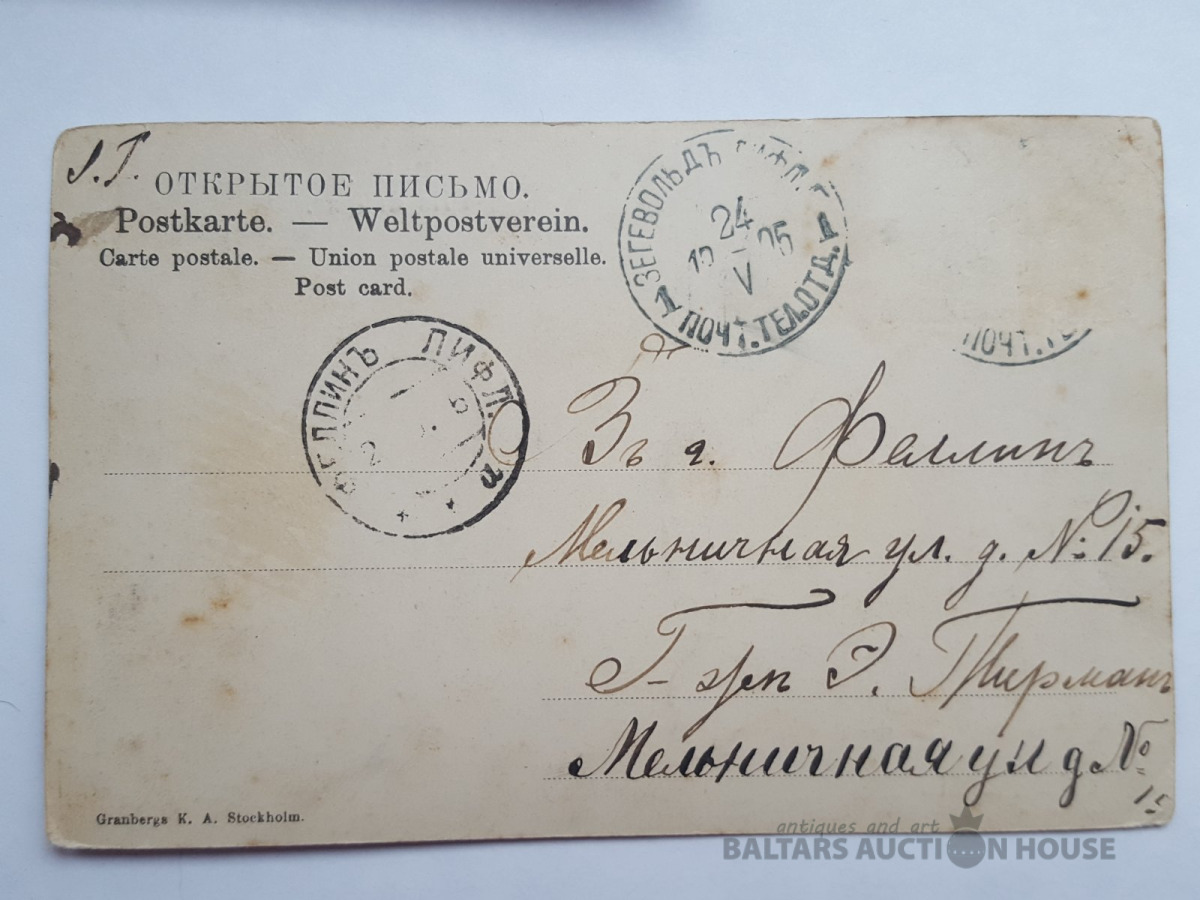 S.T.
ОТКРЫТОЕ ПИСЬМО.
Postkarte. — Weltpostverein.
Carte postale. — Union postale universelle.
Post card.
ЗЕГЕВОЛЬДЪ ЛИФЛ. Г.
24
V
1905
1 ПОЧТ.ТЕЛ.ОТД. 1
ПОЧТ.ТЕ
ФЕЛЛИНЪ ЛИФЛ.
Въ г. Феллинъ
Мельничная ул. д. № 15.
Г-жѣ Э. Тирманъ
Мельничная ул д №
15
Granbergs K. A. Stockholm.
antiques and art
BALTARS AUCTION HOUSE